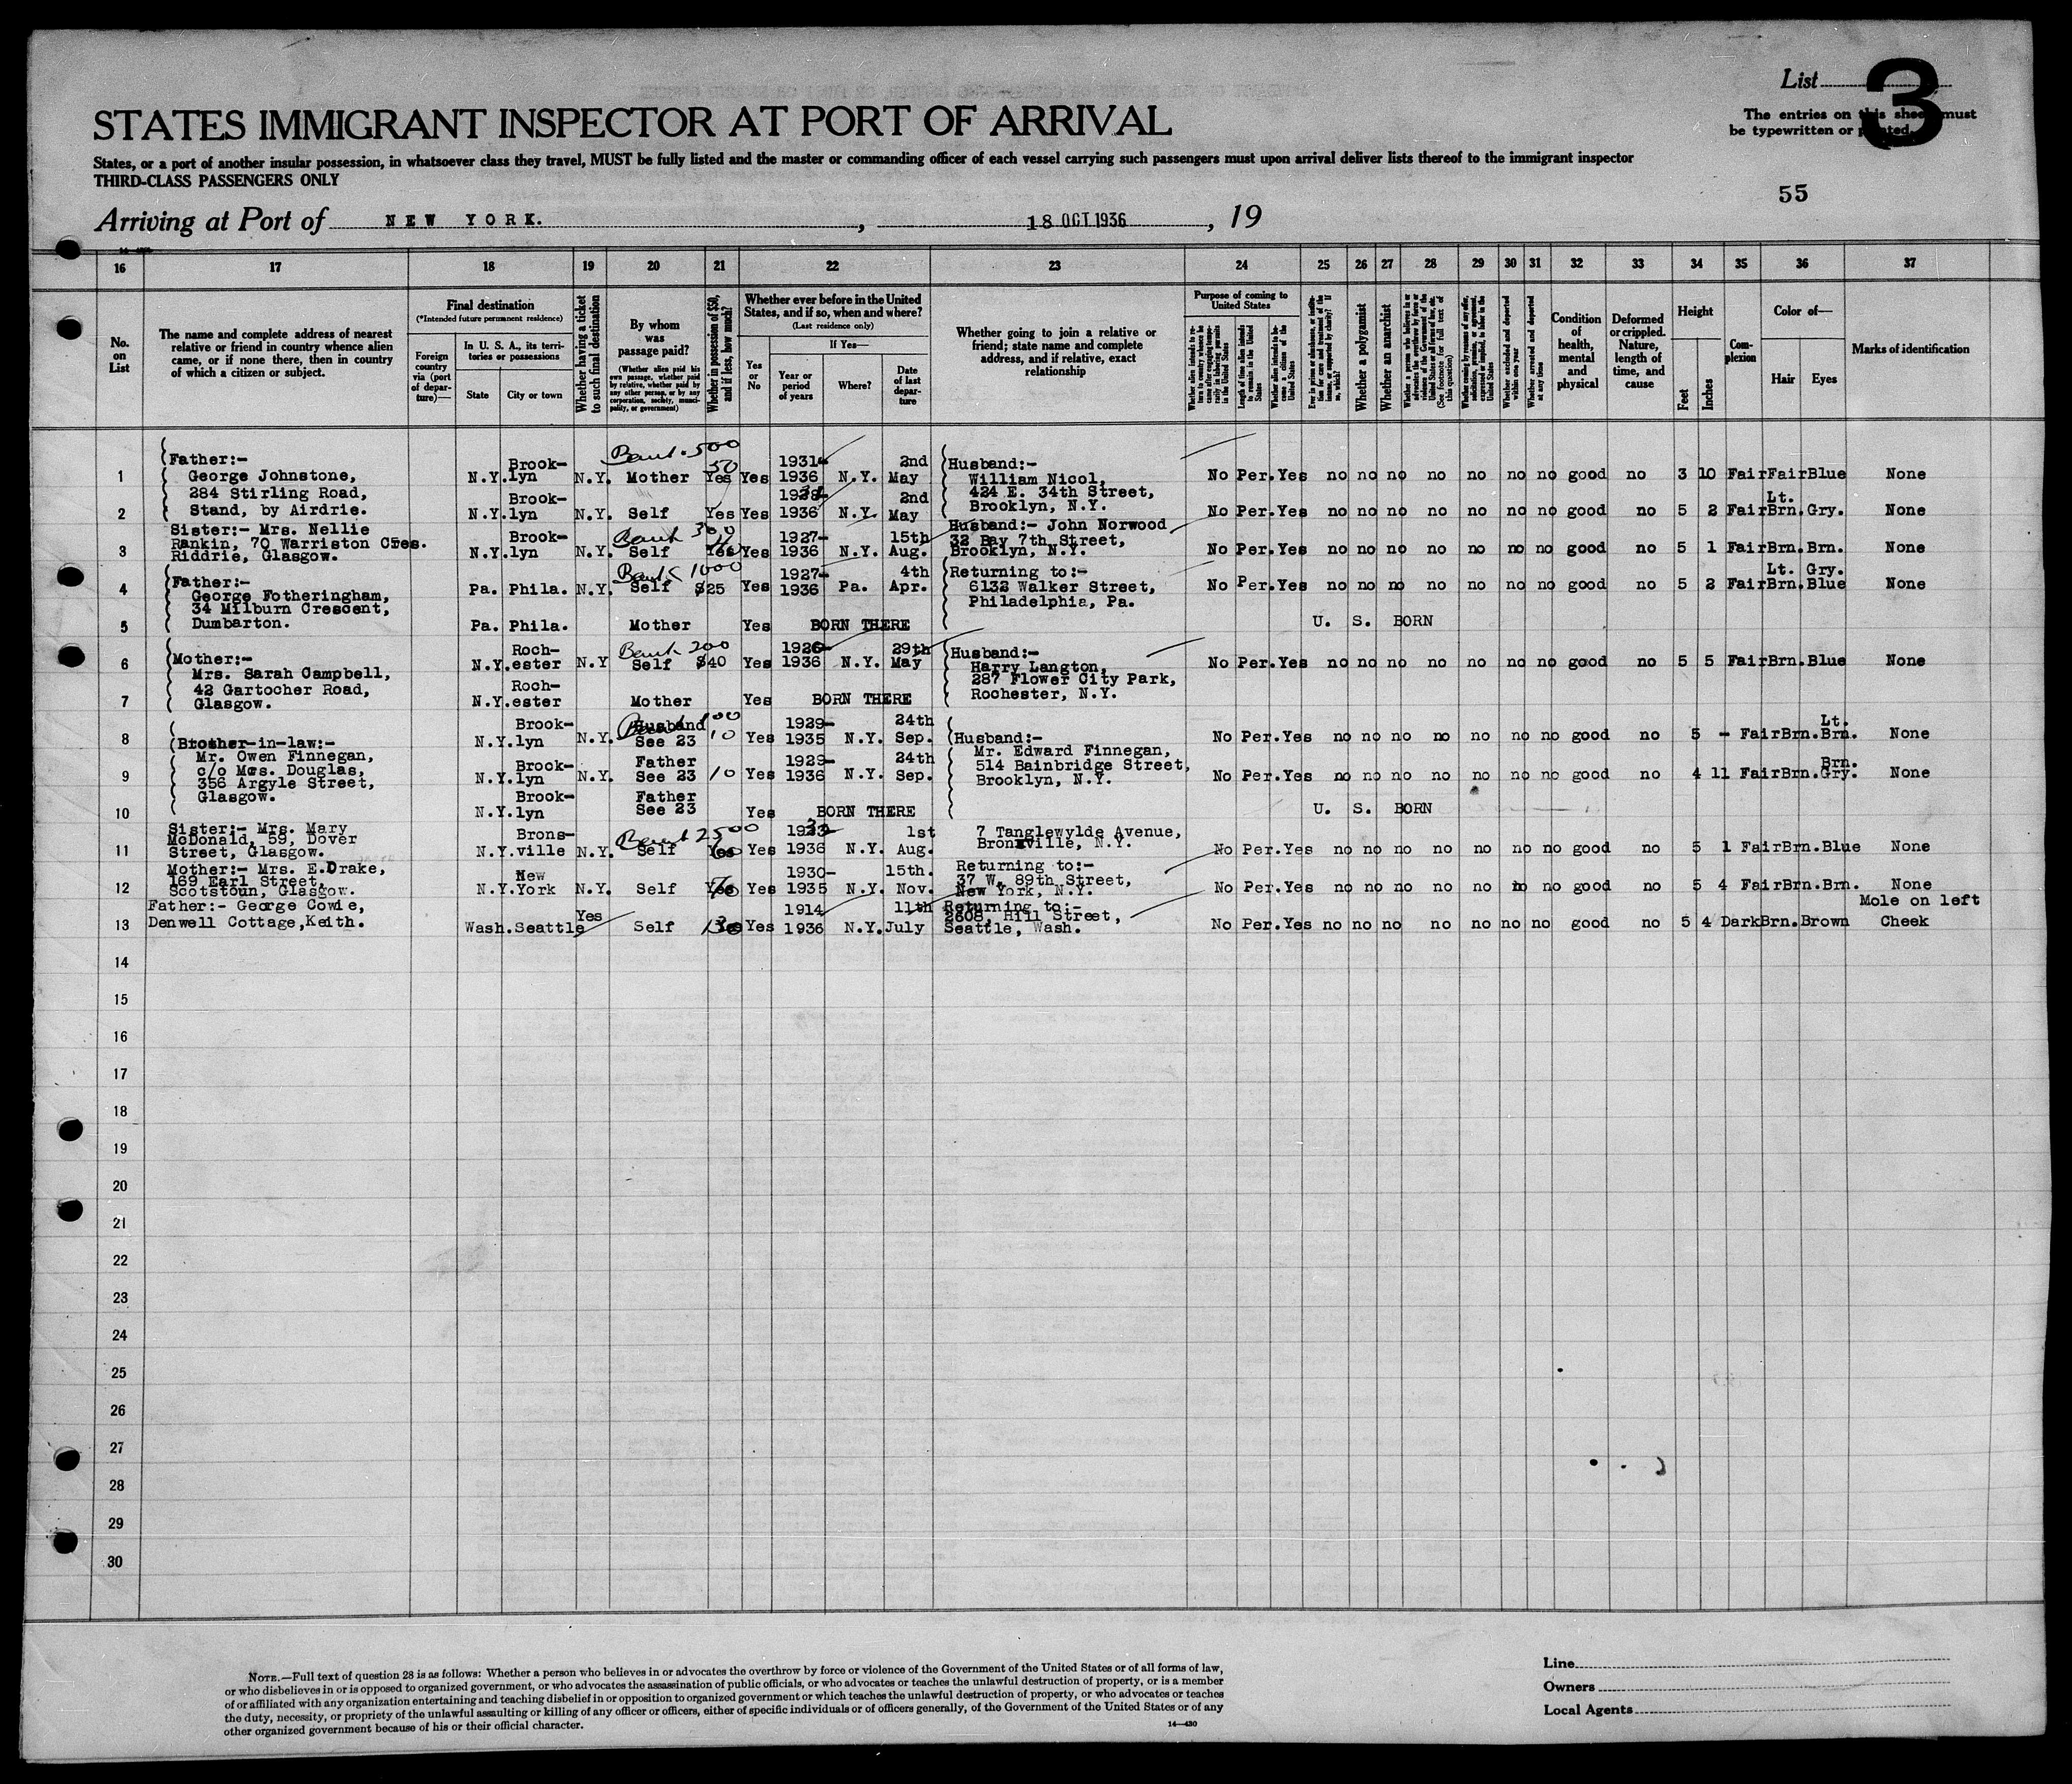 List
3
The entries on this sheet must
be typewritten or printed.
STATES IMMIGRANT INSPECTOR AT PORT OF ARRIVAL
States, or a port of another insular possession, in whatsoever class they travel, MUST be fully listed and the master or commanding officer of each vessel carrying such passengers must upon arrival deliver lists thereof to the immigrant inspector
THIRD-CLASS PASSENGERS ONLY
55
Arriving at Port of NEW YORK. , 18 OCT 1936 , 19
16 17 18 19 20 21 22 23 24 25 26 27 28 29 30 31 32 33 34 35 36 37
No.
on
List
The name and complete address of nearest
relative or friend in country whence alien
came, or if none there, then in country
of which a citizen or subject.
Final destination
(*Intended future permanent residence)
Foreign
country
via (port
of depar-
ture)—
In U. S. A., its terri-
tories or possessions
State
City or town
Whether having a ticket
to such final destination
By whom
was
passage paid?
(Whether alien paid his
own passage, whether paid
by relative, whether paid by
any other person, or by any
corporation, society, munici-
pality, or government)
Whether in possession of $50,
and if less, how much?
Whether ever before in the United
States, and if so, when and where?
(Last residence only)
Yes
or
No
If Yes—
Year or
period
of years
Where?
Date
of last
depar-
ture
Whether going to join a relative or
friend; state name and complete
address, and if relative, exact
relationship
Purpose of coming to
United States
Whether alien intends to re-
turn to country whence he
came after engaging tempo-
rarily in laboring pursuits
in the United States
Length of time alien intends
to remain in the United
States
Whether alien intends to be-
come a citizen of the
United States
Whether a polygamist
Whether an anarchist
Whether excluded and deported
within one year
Whether arrested and deported
at any time
Condition
of
health,
mental
and
physical
Deformed
or crippled.
Nature,
length of
time, and
cause
Height
Feet
Inches
Com-
plexion
Color of—
Hair
Eyes
Marks of identification
1
Father:-
George Johnstone,
284 Stirling Road,
Stand, by Airdrie.
N.Y. Brook-
lyn N.Y. Mother Bank 500 50 Yes Yes 1931-
1936 N.Y. 2nd
May
Husband:-
William Nicol,
424 E. 34th Street,
Brooklyn, N.Y.
No Per. Yes no no no no no no no good no 3 10 Fair Fair Blue None
2
N.Y. Brook-
lyn N.Y. Self Yes Yes
1936 N.Y. 2nd
May
No Per. Yes no no no no no no no good no 5 2 Fair Lt.
Brn. Gry. None
3
Sister:- Mrs. Nellie
Rankin, 70 Warriston Cres.
Riddrie, Glasgow.
N.Y. Brook-
lyn N.Y. Self Bank 300 Yes Yes 1927-
1936 N.Y. 15th
Aug.
Husband:- John Norwood
32 Bay 7th Street,
Brooklyn, N.Y.
No Per. Yes no no no no no no no good no 5 1 Fair Brn. Brn. None
4
Father:-
George Fotheringham,
34 Milburn Crescent,
Dumbarton.
Pa. Phila. N.Y. Self Bank 1000 $25 Yes 1927-
1936 Pa. 4th
Apr.
Returning to:-
6132 Walker Street,
Philadelphia, Pa.
No Per. Yes no no no no no no no good no 5 2 Fair Lt. Gry.
Brn. Blue None
5
Pa. Phila. Mother Yes BORN THERE U. S. BORN
6
Mother:-
Mrs. Sarah Campbell,
42 Gartocher Road,
Glasgow.
N.Y. Roch-
ester N.Y Self Bank 200 $40 Yes 1926-
1936 N.Y. 29th
May
Husband:-
Harry Langton,
287 Flower City Park,
Rochester, N.Y.
No Per. Yes no no no no no no no good no 5 5 Fair Brn. Blue None
7
N.Y. Roch-
ester Mother Yes BORN THERE
8
Brother-in-law:-
Mr. Owen Finnegan,
c/o Mrs. Douglas,
356 Argyle Street,
Glasgow.
N.Y. Brook-
lyn N.Y. Husband
See 23 10 Yes 1929-
1935 N.Y. 24th
Sep.
Husband:-
Mr. Edward Finnegan,
514 Bainbridge Street,
Brooklyn, N.Y.
No Per. Yes no no no no no no no good no 5 - Fair Brn. Lt.
Brn. None
9
N.Y. Brook-
lyn N.Y. Father
See 23 10 Yes 1929-
1936 N.Y. 24th
Sep.
No Per. Yes no no no no no no no good no 4 11 Fair Brn. Brn.
Gry. None
10
N.Y. Brook-
lyn Father
See 23 Yes BORN THERE U. S. BORN
11
Sister:- Mrs. Mary
McDonald, 59, Dover
Street, Glasgow.
N.Y. Brons-
ville N.Y. Self Bank 2500 Yes Yes
1936 N.Y. 1st
Aug.
7 Tanglewylde Avenue,
Bronxville, N.Y.
No Per. Yes no no no no no no no good no 5 1 Fair Brn. Blue None
12
Mother:- Mrs. E.Drake,
169 Earl Street,
Scotstoun, Glasgow.
N.Y. New
York N.Y. Self Yes Yes 1930-
1935 N.Y. 15th.
Nov.
Returning to:-
37 W. 89th Street,
New York, N.Y.
No Per. Yes no no no no no no no good no 5 4 Fair Brn. Brn. None
13
Father:- George Cowie,
Denwell Cottage, Keith.
Wash. Seattle Yes Self Yes Yes 1914
1936 N.Y. 11th
July
Returning to:-
2608, Hill Street,
Seattle, Wash.
No Per. Yes no no no no no no no good no 5 4 Dark Brn. Brown Mole on left
Cheek
14
15
16
17
18
19
20
21
22
23
24
25
26
27
28
29
30
NOTE.—Full text of question 28 is as follows: Whether a person who believes in or advocates the overthrow by force or violence of the Government of the United States or of all forms of law,
or who disbelieves in or is opposed to organized government, or who advocates the assassination of public officials, or who advocates or teaches the unlawful destruction of property, or is a member
of or affiliated with any organization entertaining and teaching disbelief in or opposition to organized government or which teaches the unlawful destruction of property, or who advocates or teaches
the duty, necessity, or propriety of the unlawful assaulting or killing of any officer or officers, either of specific individuals or of officers generally, of the Government of the United States or of any
other organized government because of his or their official character.
14—430
Line
Owners
Local Agents